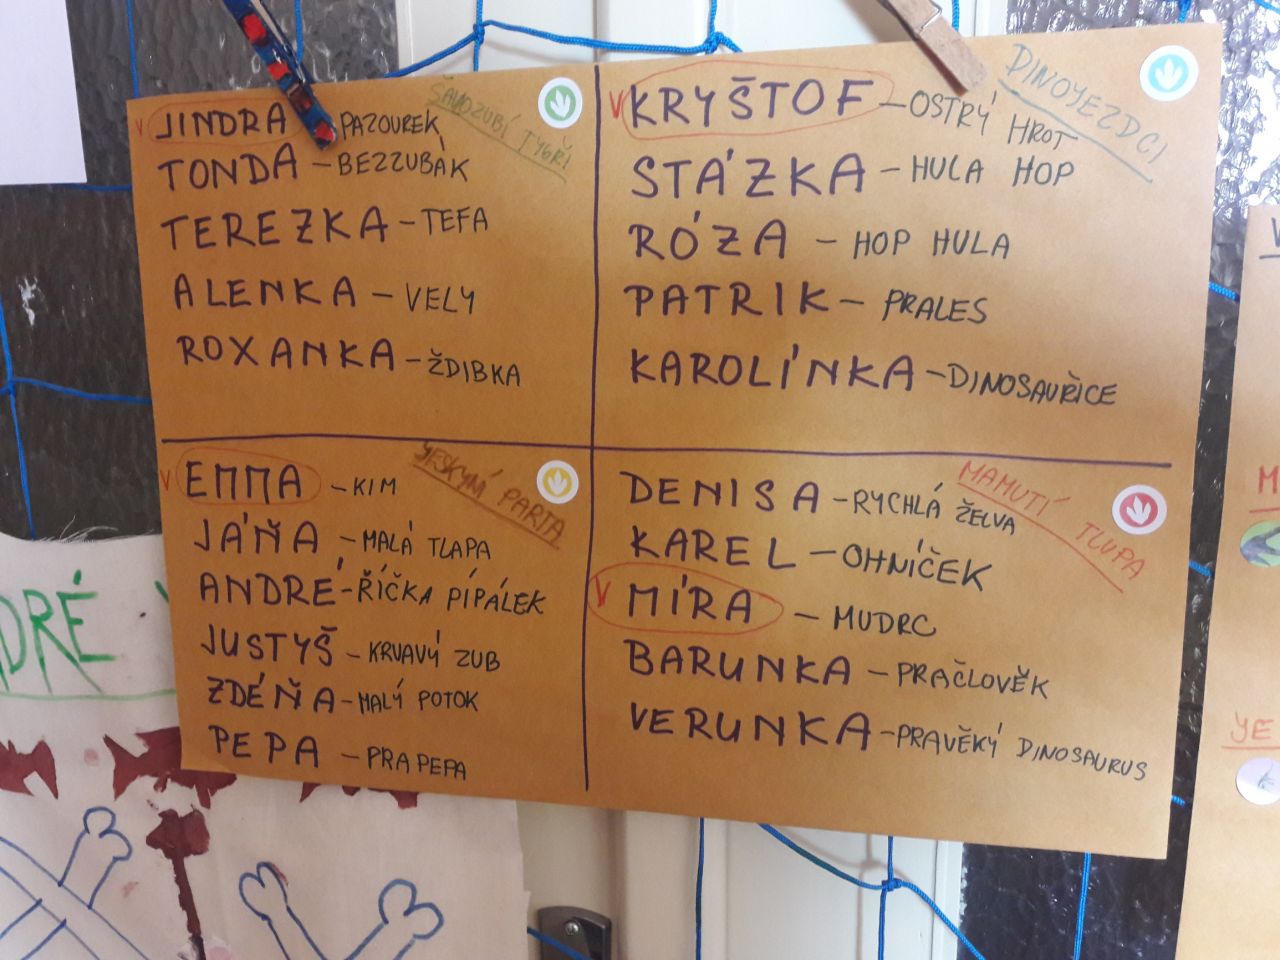 ŠAVOZUBÍ TYGŘI
V JINDRA - PAZOUREK
TONDA - BEZZUBÁK
TEREZKA - TEFA
ALENKA - VELY
ROXANKA - ŽDIBKA
DINOJEZDCI
V KRYŠTOF - OSTRÝ HROT
STÁZKA - HULA HOP
RÓZA - HOP HULA
PATRIK - PRALES
KAROLÍNKA - DINOSAUŘICE
JESKYNÍ PARTA
V EMMA - KIM
JÁŇA - MALÁ TLAPA
ANDRÉ - ŘÍČKA PÍPÁLEK
JUSTYŠ - KRVAVÝ ZUB
ZDÉŇA - MALÝ POTOK
PEPA - PRAPEPA
MAMUTÍ TLUPA
DENISA - RYCHLÁ ŽELVA
KAREL - OHNÍČEK
V MÍRA - MUDRC
BARUNKA - PRAČLOVĚK
VERUNKA - PRAVĚKÝ DINOSAURUS
DRÉ
V
M
JE